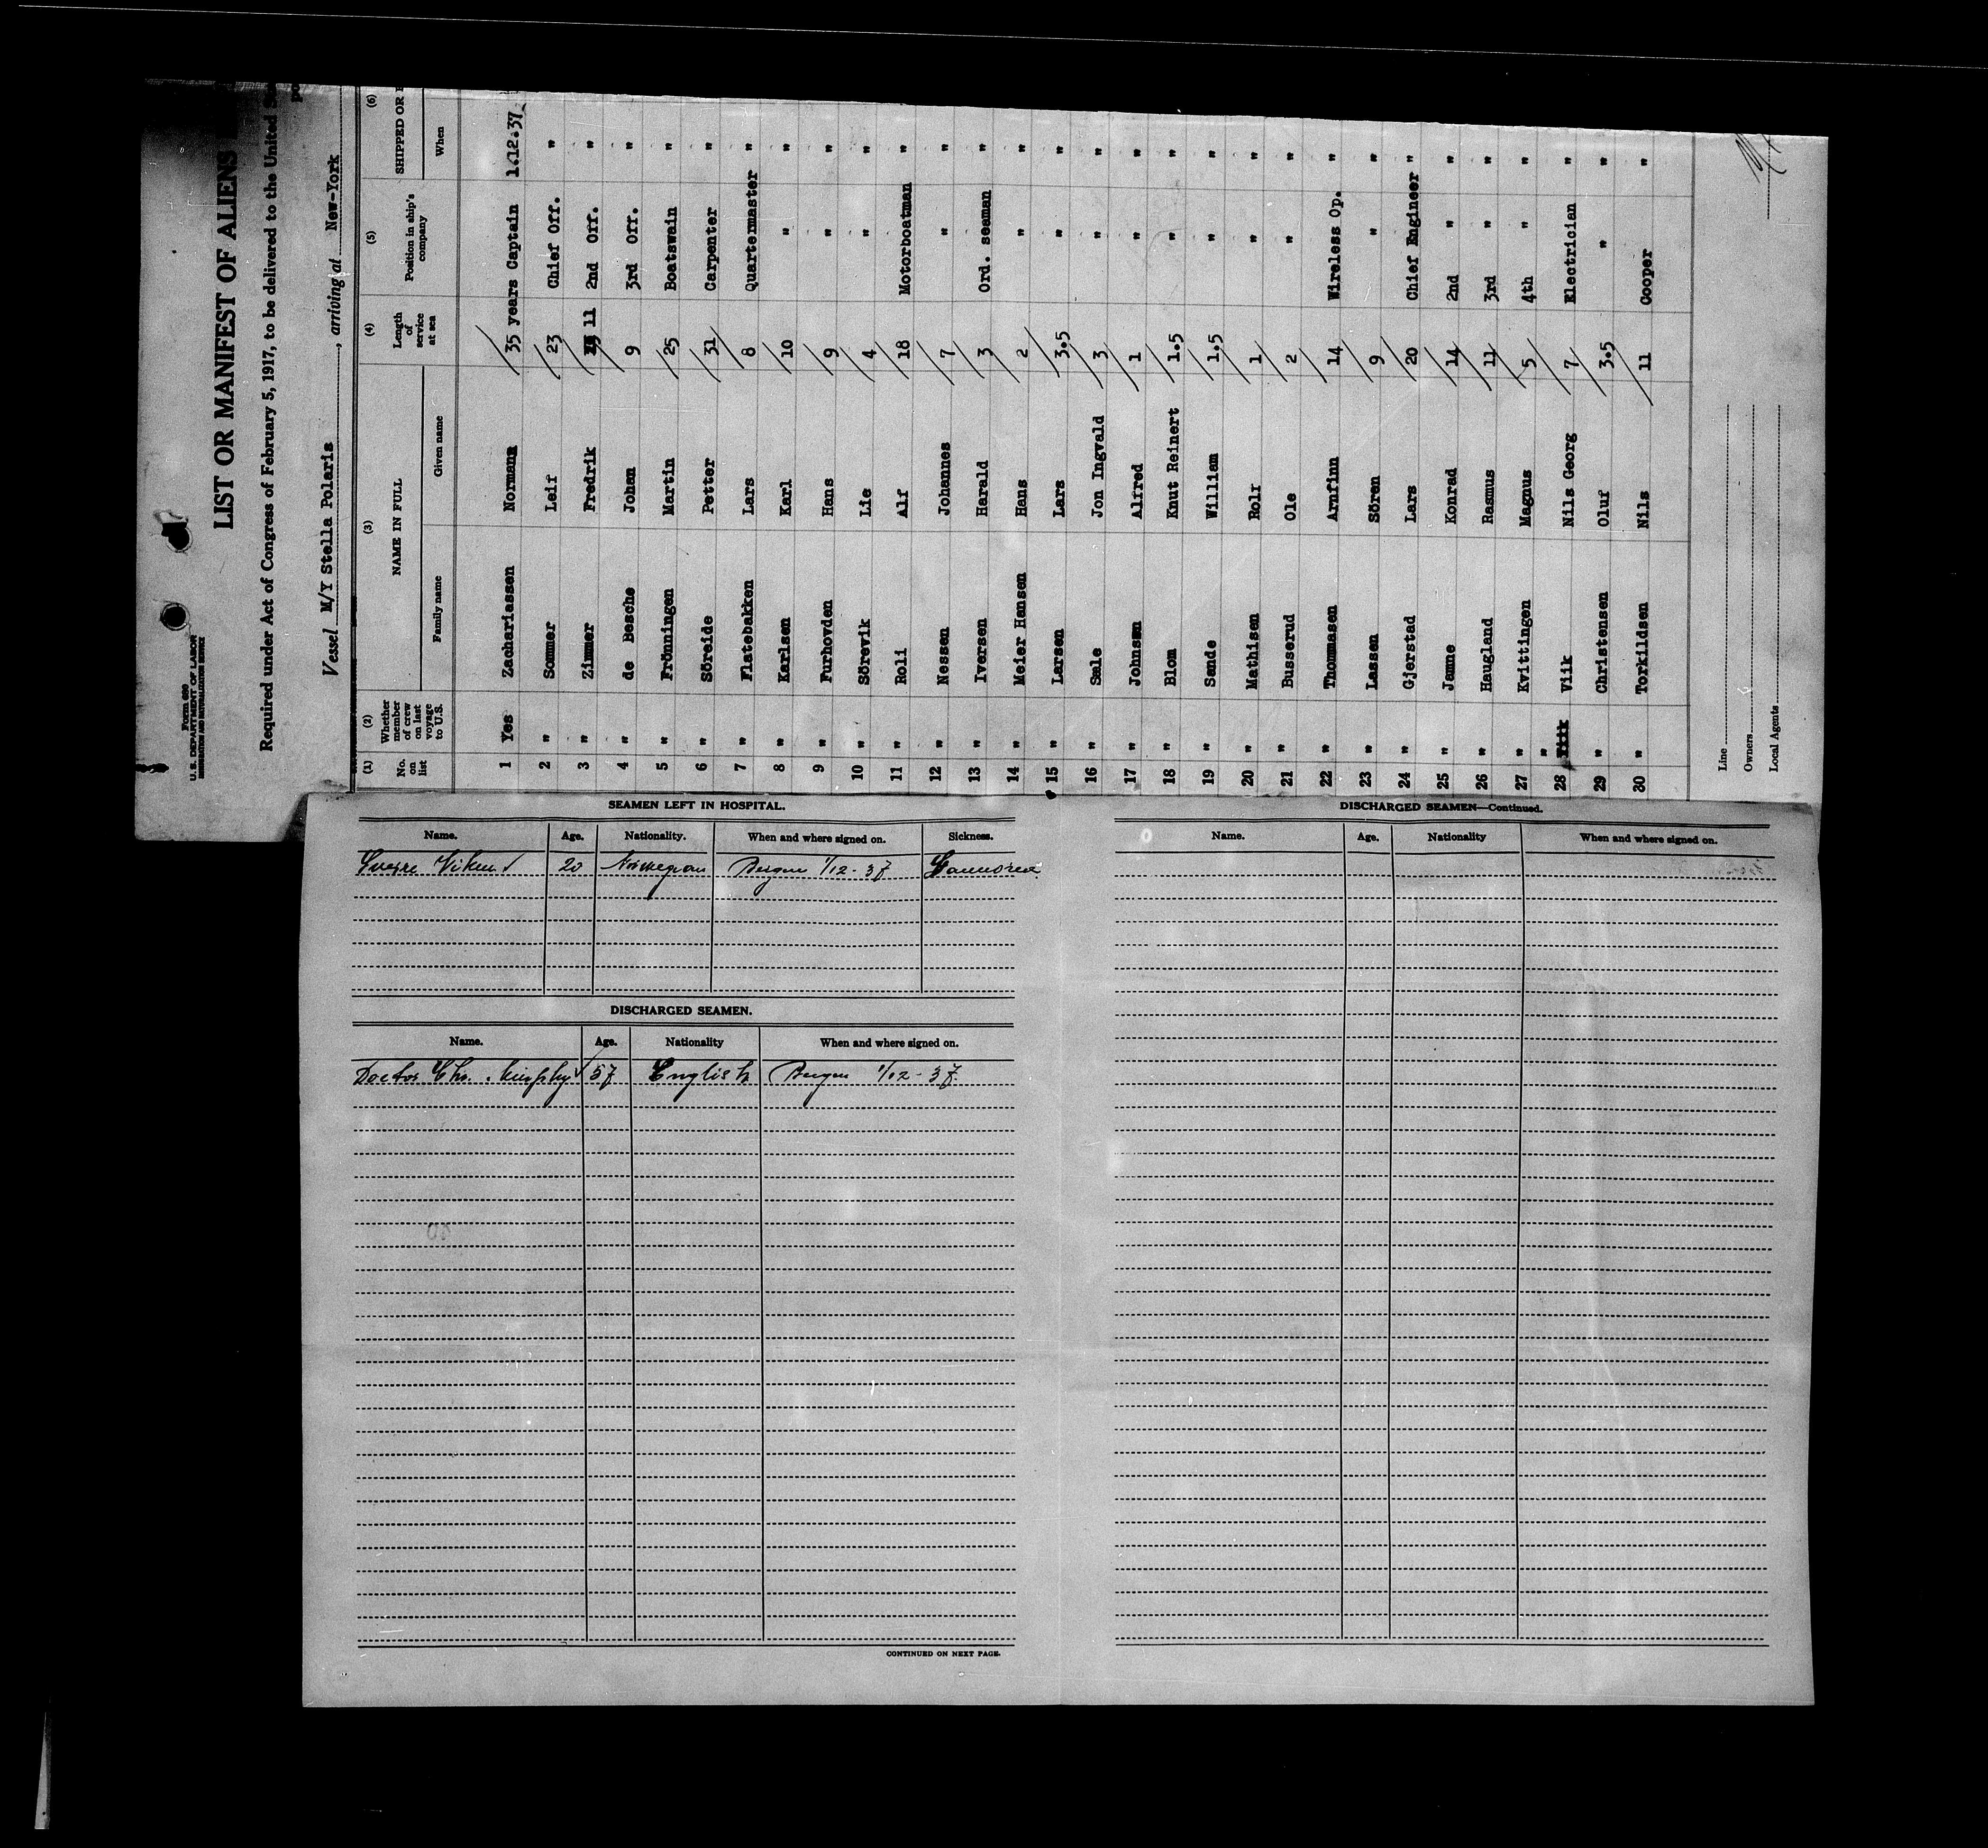 Form 680
U.S. DEPARTMENT OF LABOR
IMMIGRATION AND NATURALIZATION SERVICE
LIST OR MANIFEST OF ALIENS
Required under Act of Congress of February 5, 1917, to be delivered to the United
Vessel M/Y Stella Polaris, arriving at New-York
(1) (2) (3) (4) (5) (6)
No. on list Whether member of crew on last voyage to U.S. NAME IN FULL Length of service at sea Position in ship's company SHIPPED OR
Family name Given name When
1 Yes Zachariassen Normann 35 years Captain 1.12.37.
2 " Sommer Leif 23 Chief Off. "
3 " Zimmer Fredrik 11 2nd Off. "
4 " de Besche Johan 9 3rd Off. "
5 " Frönningen Martin 25 Boatswain "
6 " Söreide Petter 31 Carpenter "
7 " Flatebakken Lars 8 Quartermaster "
8 " Karlsen Karl 10 " "
9 " Furhovden Hans 9 " "
10 " Sörevik Lie 4 " "
11 " Roli Alf 18 Motorboatman "
12 " Nessen Johannes 7 " "
13 " Iversen Harald 3 Ord. seaman "
14 " Meier Hansen Hans 2 " "
15 " Larsen Lars 3.5 " "
16 " Sæle Jon Ingvald 3 " "
17 " Johnsen Alfred 1 " "
18 " Blom Knut Reinert 1.5 " "
19 " Sande William 1.5 " "
20 " Mathisen Rolr 1 " "
21 " Busserud Ole 2 " "
22 " Thommasen Arnfinn 14 Wireless Op. "
23 " Lassen Sören 9 " "
24 " Gjerstad Lars 20 Chief Engineer "
25 " Jamne Konrad 14 2nd " "
26 " Haugland Rasmus 11 3rd " "
27 " Kvittingen Magnus 5 4th " "
28 " Viik Nils Georg 7 Electrician "
29 " Christensen Oluf 3.5 " "
30 " Torkildsen Nils 11 Cooper "
Line
Owners
Local Agents
SEAMEN LEFT IN HOSPITAL.
Name. Age. Nationality. When and where signed on. Sickness.
Sverre 20 Norwegian Bergen 1/12-37
DISCHARGED SEAMEN.
Name. Age. Nationality When and where signed on.
Doctor Chr. Murphy 57 English Bergen 1/12-37.
CONTINUED ON NEXT PAGE.
DISCHARGED SEAMEN—Continued.
Name. Age. Nationality When and where signed on.